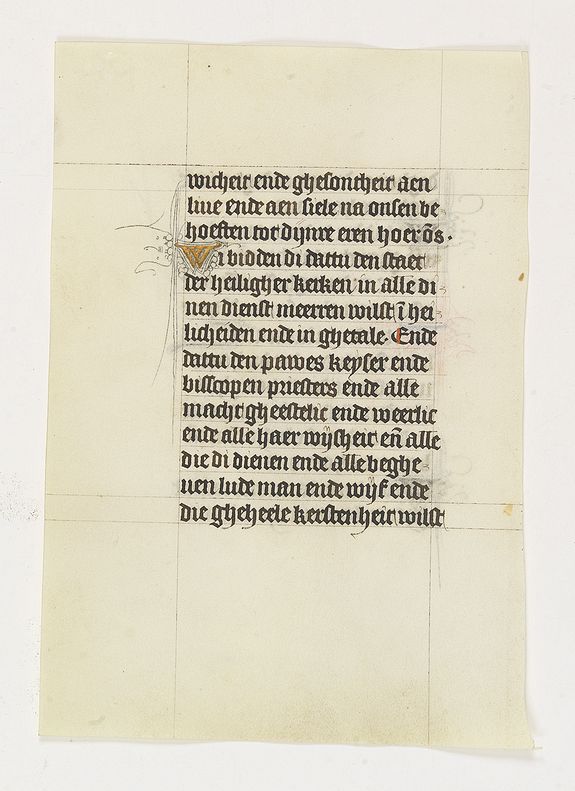 wicheit ende ghesontheit aen
liue ende aen siele na onsen be
hoeften tot dijnre eren hoer ōs.
Wi bidden di dattu den staet
der heiligher kerken in alle di
nen dienst meerren wilst ī hei
licheiden ende in ghetale. Ende
dattu den pawes keyser ende
bisscopen priesters ende alle
macht gheestelic ende weerlic
ende alle haer wijsheit eñ alle
die di dienen ende alle beghe
uen lude man ende wijf ende
die gheheele kerstenheit wilst